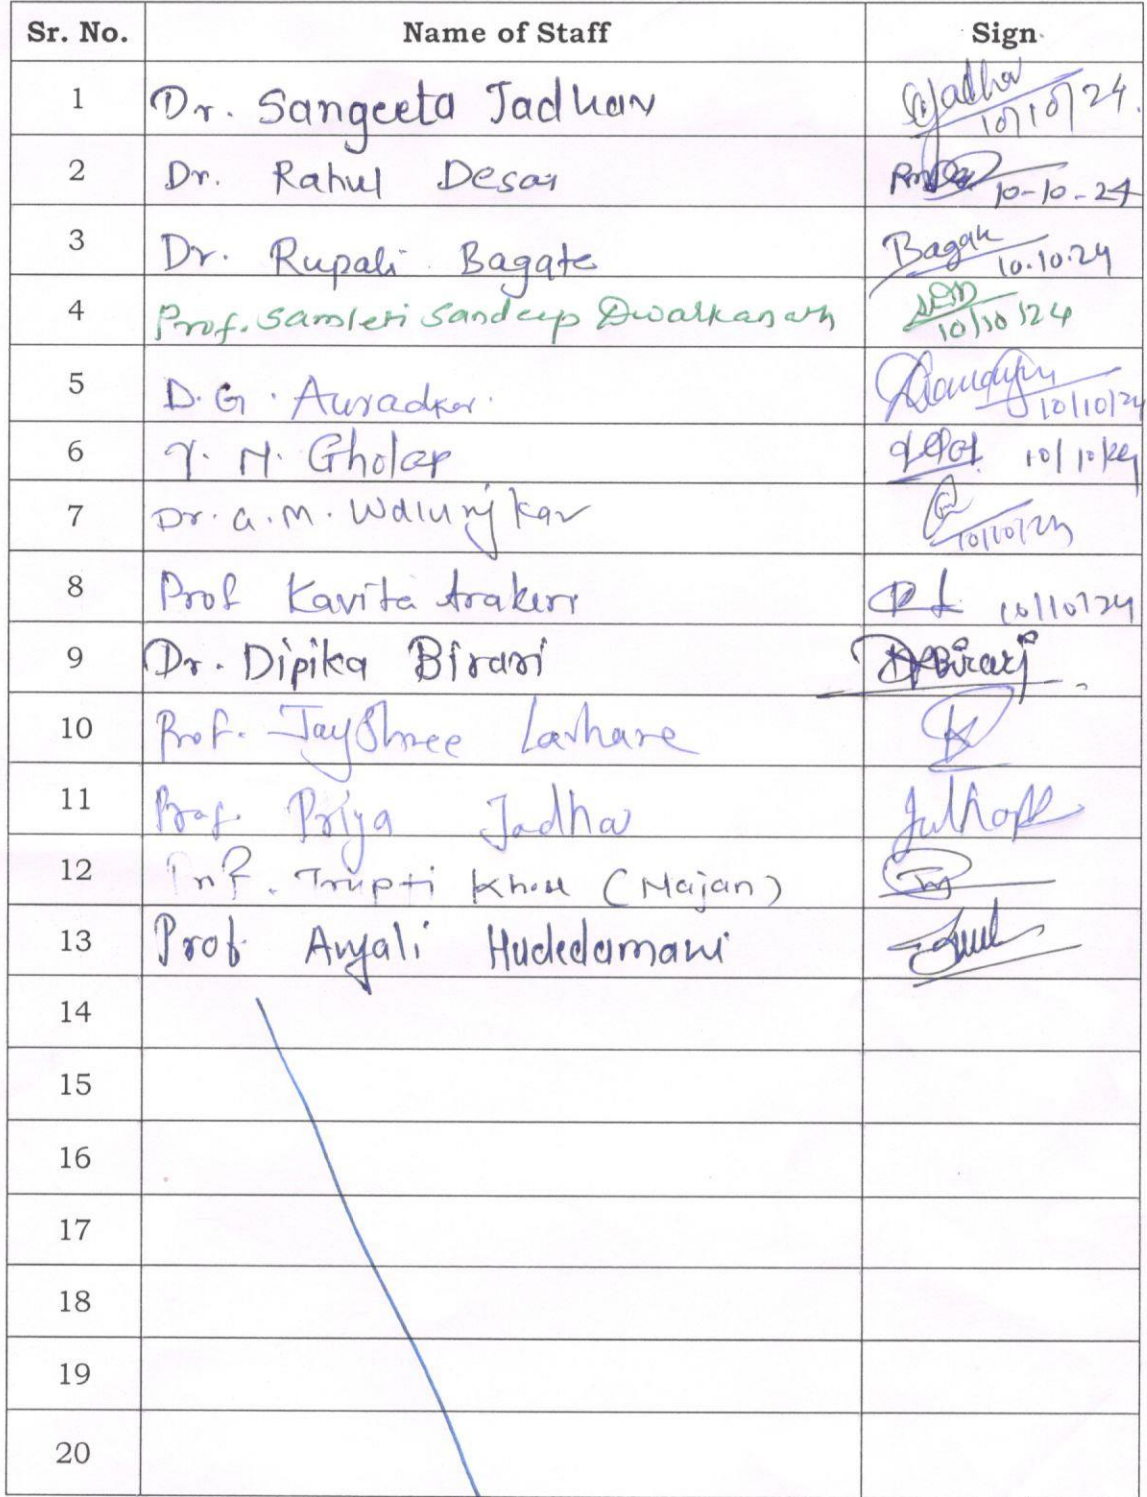 Sr. No. Name of Staff Sign
1 Dr. Sangeeta Jadhav Jadhav 10/10/24
2 Dr. Rahul Desai 10-10-24
3 Dr. Rupali Bagate Bagate 10.10.24
4 Prof. Samleti Sandeep Dwarkanath 10/10/24
5 D.G. Auradkar. 10/10/24
6 Y. N. Gholap 10/10/24
7 Dr. G.M. Walunjkar 10/10/24
8 Prof Kavita Arakeri 10/10/24
9 Dr. Dipika Birari DBirari
10 Prof. Jayshree Lavhare
11 Prof. Priya Jadhav
12 Prof. Trupti (Majan)
13 Prof Anjali Hudedamani
14
15
16
17
18
19
20